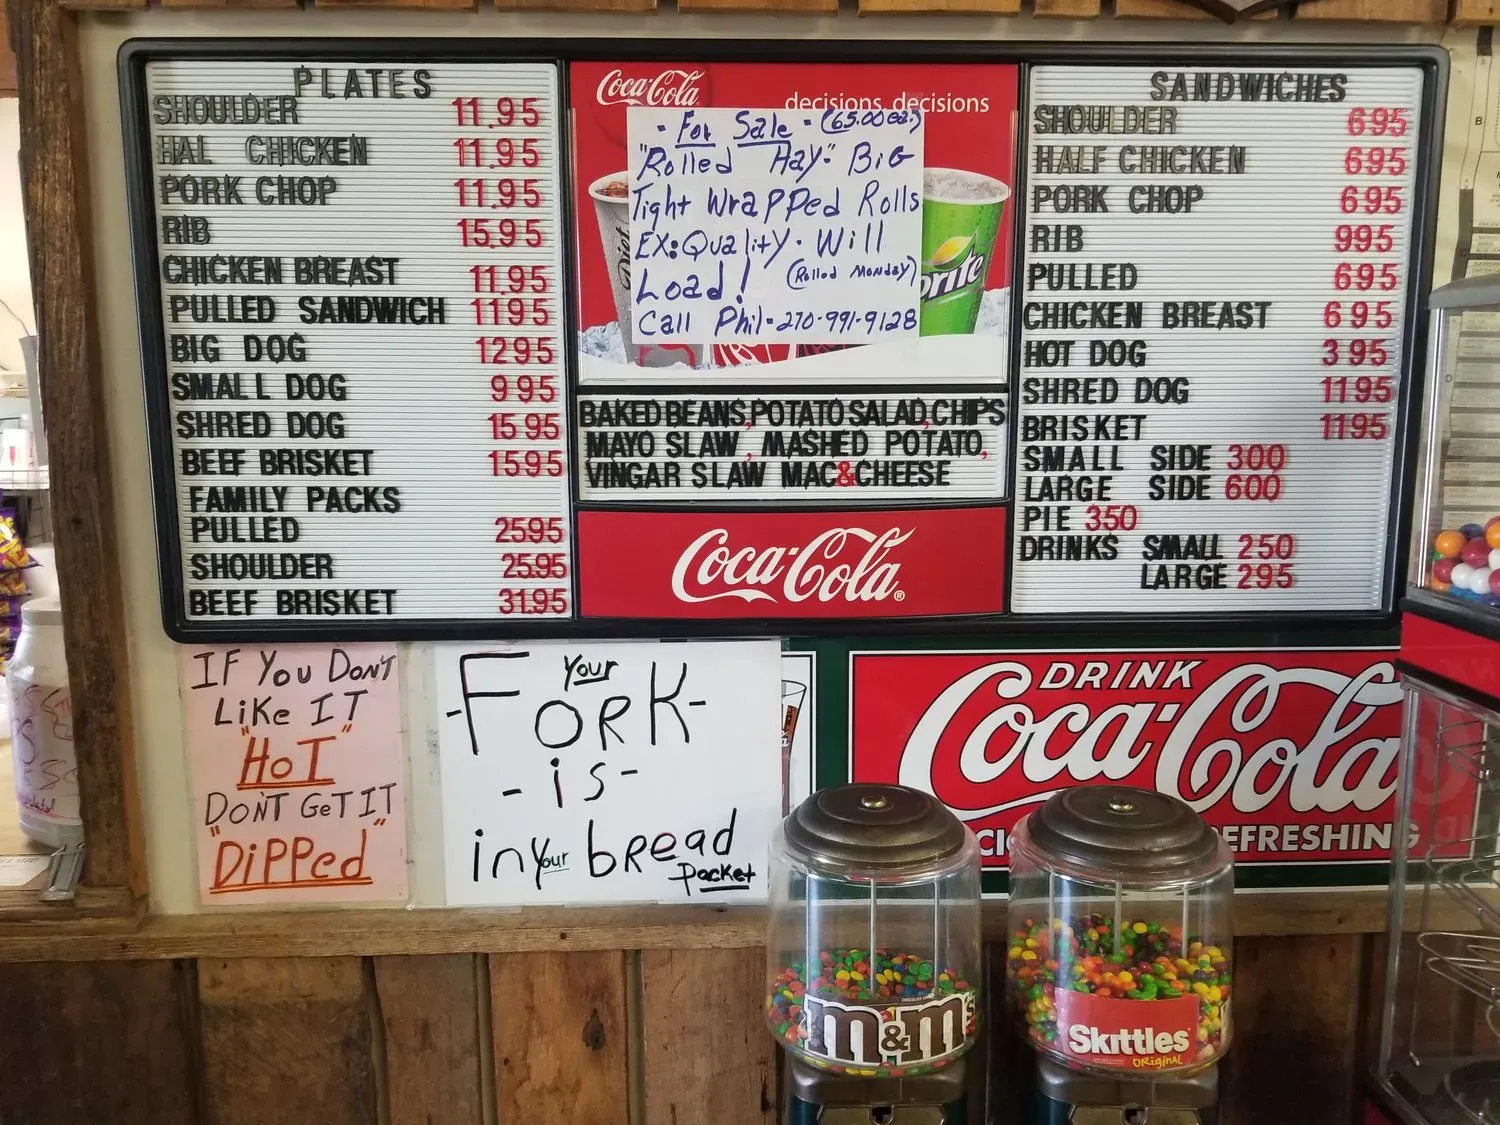 PLATES
SHOULDER 11.95
HAL CHICKEN 11.95
PORK CHOP 11.95
RIB 15.95
CHICKEN BREAST 11.95
PULLED SANDWICH 1195
BIG DOG 1295
SMALL DOG 995
SHRED DOG 1595
BEEF BRISKET 1595
FAMILY PACKS
PULLED 2595
SHOULDER 25.95
BEEF BRISKET 31.95
Coca-Cola
decisions, decisions
- For Sale - (65.00 ea.)
"Rolled Hay": BiG
Tight Wrapped Rolls
EX: Quality. Will
Load! (Rolled Monday)
Call Phil - 270-991-9128
Diet
Sprite
BAKED BEANS, POTATO SALAD, CHIPS
MAYO SLAW, MASHED POTATO,
VINGAR SLAW MAC&CHEESE
Coca-Cola®
SANDWICHES
SHOULDER 695
HALF CHICKEN 695
PORK CHOP 695
RIB 995
PULLED 695
CHICKEN BREAST 695
HOT DOG 395
SHRED DOG 1195
BRISKET 1195
SMALL SIDE 300
LARGE SIDE 600
PIE 350
DRINKS SMALL 250
LARGE 295
IF You DoN'T
LiKe IT
"HoT"
DoN'T GeT IT
"DiPPed"
Your
-FORK-
- is -
in your bread
packet
DRINK
Coca-Cola
REFRESHING
m&m's
Skittles
ORiginal